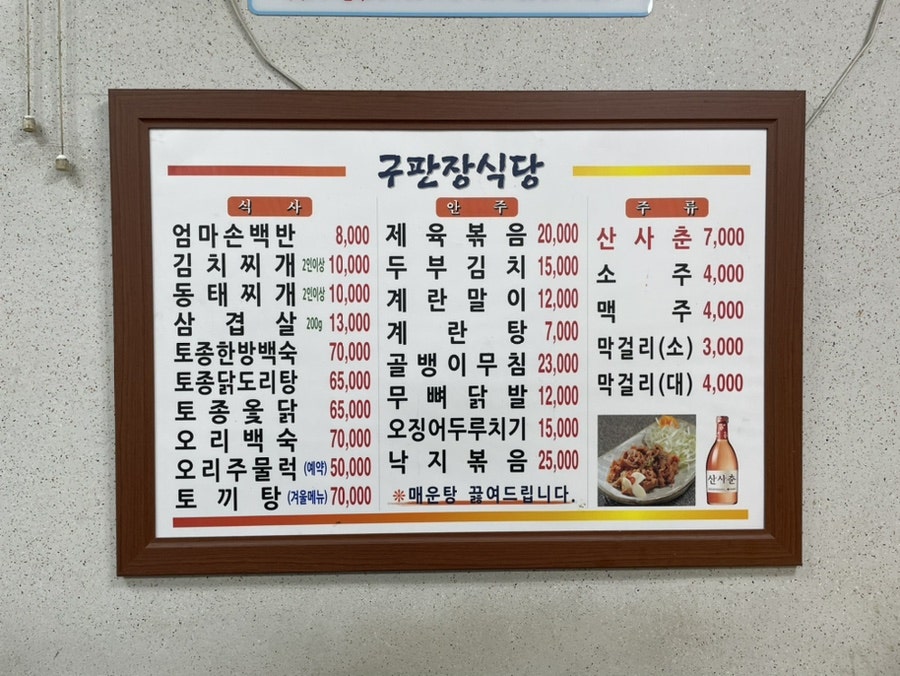 구판장식당
식 사
엄마손백반 8,000
김치찌개 2인이상 10,000
동태찌개 2인이상 10,000
삼겹살 200g 13,000
토종한방백숙 70,000
토종닭도리탕 65,000
토종옻닭 65,000
오리백숙 70,000
오리주물럭 (예약) 50,000
토끼탕 (겨울메뉴) 70,000
안 주
제육볶음 20,000
두부김치 15,000
계란말이 12,000
계란탕 7,000
골뱅이무침 23,000
무뼈닭발 12,000
오징어두루치기 15,000
낙지볶음 25,000
※매운탕 끓여드립니다.
주 류
산사춘 7,000
소주 4,000
맥주 4,000
막걸리(소) 3,000
막걸리(대) 4,000
산사춘